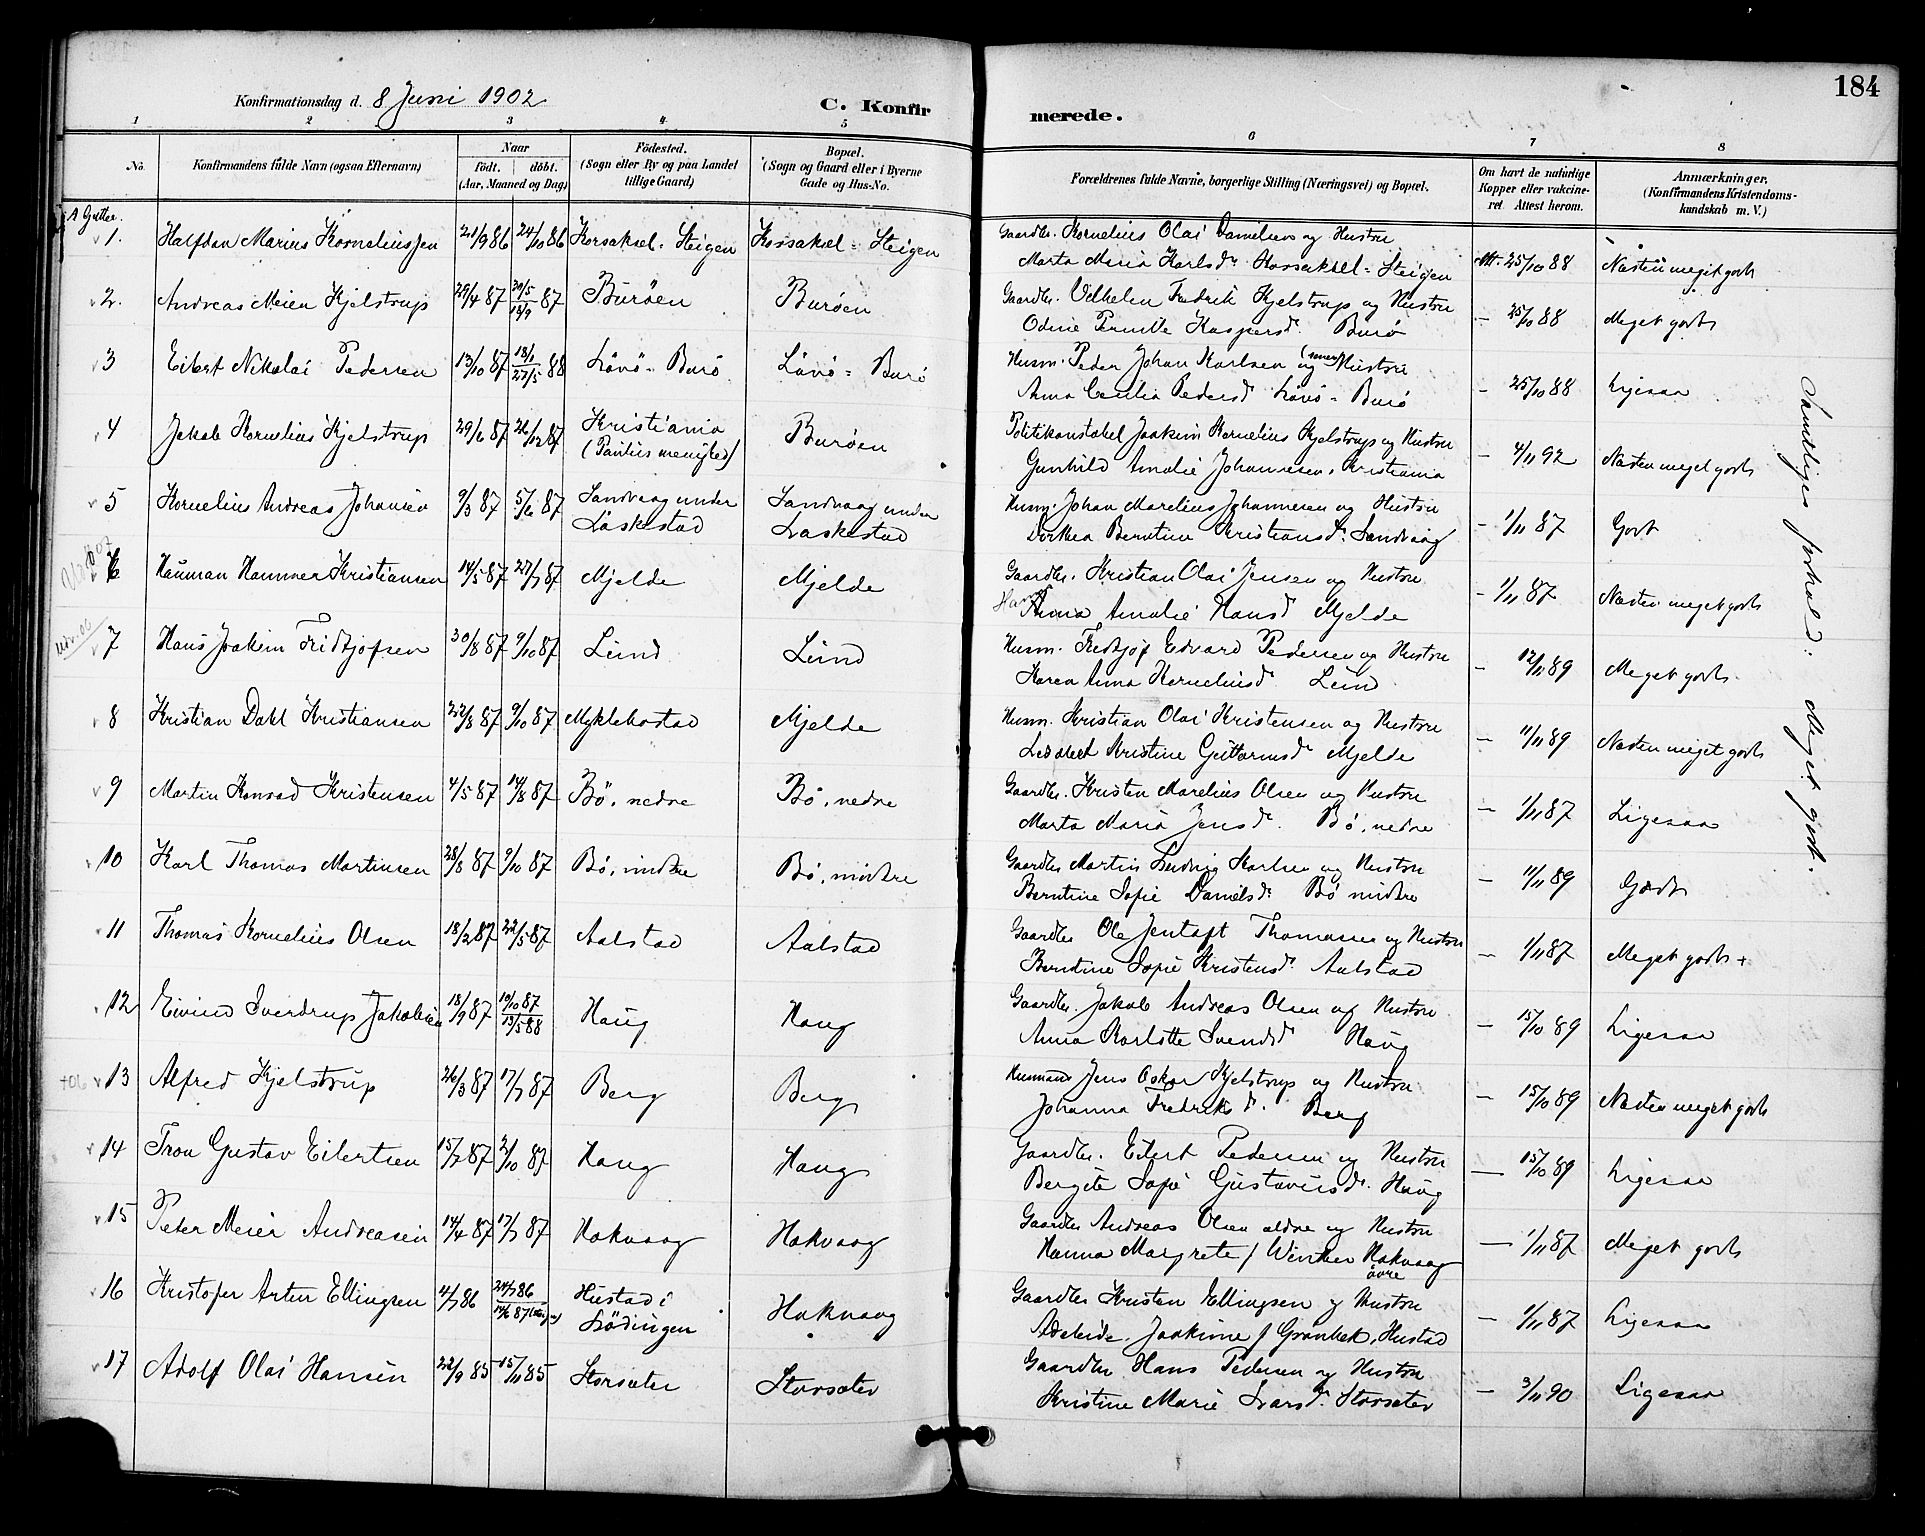 184
Konfirmationsdag d. 8 Juni 1902
C. Konfirmerede.
1 2 3 4 5 6 7 8
No.
Konfirmandens fulde Navn (ogsaa Efternavn)
Naar
født. døbt.
(Aar, Maaned og Dag)
Fødested.
(Sogn eller By og paa Landet
tillige Gaard)
Bopæl.
(Sogn og Gaard eller i Byerne
Gade og Hus-No.
Forældrenes fulde Navne, borgerlige Stilling (Næringsvei) og Bopæl.
Om havt de naturlige
Kopper eller vakcine-
ret. Attest herom.
Anmærkninger.
(Konfirmandens Kristendoms-
kundskab m. V.)
A Gutter.
1. Halfdan Marius Kornelius Jen 21/9 86 24/10 86 Korsakel = Steigen Korsakel = Steigen Gaardbr. Kornelius Olai Danielsen og Hustru
Marta Maria Karlsdr. Korsakel = Steigen Att. 25/10 88 Næsten meget godt
2. Andreas Meier Kjelstrup 29/4 87 20/5 87 18/9 Burøen Burøen Gaardbr. Vilhelm Fredrik Kjelstrup og Hustru
Odine Pernille Kaspersd. Burø — 25/10 88 Meget godt
3 Eilert Nikolai Pedersen 13/10 87 18/1 88 27/5 Løvø = Burø Løvø = Burø Husm. Peder Johan Karlsen og Hustru
Anna Cecilia Pedersd Løvø = Burø — 25/10 88 Ligesaa
4 Jakob Kornelius Kjelstrup 29/6 87 26/12 87 Kristiania
(Paulus menighed) Burøen Politikonstabel Joakim Kornelius Kjelstrup og Hustru
Gunhild Amalie Johannesen, Kristiania — 4/11 92 Næsten meget godt
5 Kornelius Andreas Johansen 9/3 87 5/6 87 Sandvaag under
Laskestad Sandvaag under
Laskestad Husm. Johan Marelius Johannesen og Hustru
Dorthea Berntine Kristiansd. Sandvaag — 1/11 87 Godt
6 Hauman Hammer Kristiansen 14/5 87 27/7 87 Mjelde Mjelde Gaardbr. Kristian Olai Jensen og Hustru
Anna Amalie Hansd Mjelde — 1/11 87 Næsten meget godt
Udv. 06
7 Hans Joakim Fridtjofsen 30/8 87 9/10 87 Lund Lund Husm. Fredtjof Edvard Pedersen og Hustru
Karen Anna Korneliusd. Lund — 12/11 89 Meget godt.
8 Kristian Dahl Kristiansen 22/8 87 9/10 87 Myklebostad Mjelde Husm. Kristian Olai Kristensen og Hustru
Kristine Guttormsd Mjelde — 11/11 89 Næsten meget godt
9 Martin Konrad Kristensen 4/5 87 14/8 87 Bø, nedre Bø, nedre Gaardbr. Kristen Marelius Olsen og Hustru
Marta Maria Jensd. Bø, nedre — 1/11 87 Ligesaa
10 Karl Thomas Martinsen 28/8 87 9/10 87 Bø, midtre Bø, midtre Gaardbr Martin Ludvig Karlsen og Hustru
Berntine Sofie Danielsd. Bø midtre — 11/11 89 Godt
11 Thomas Kornelius Olsen 18/2 87 22/5 87 Aalstad Aalstad Gaardbr Ole Jentoft Thomassen og Hustru
Berntine Sofie Kristensd. Aalstad — 1/11 87 Meget godt +
12 Eivind Sverdrup Jakobsen 18/9 87 10/10 87 13/5 88 Haug Haug Gaardbr. Jakob Andreas Olsen og Hustru.
Anna Karlotte Svendsd Haug — 15/10 89 Ligesaa
+06 13 Alfred Kjelstrup 26/3 87 17/7 87 Berg Berg Husmand Jens Oskar Kjelstrup og Hustru
Johanna Fredriksd. Berg — 15/10 89 Næsten meget godt
14 Tron Gustav Eilertsen 15/7 87 2/10 87 Haug Haug Gaardbr. Eilert Pedersen og Hustru
Bergete Sofie Gustavusd. Haug — 15/10 89 Ligesaa
15 Peter Meier Andreasen 14/4 87 17/7 87 Hakvaag Hakvaag Gaardbr Andreas Olsen ældre og Hustru
Hanna Margrete f. Winther Hakvaag
øvre — 1/11 87 Meget godt
16 Kristofer Artur Ellingsen 4/7 86 24/7 86 Hustad i
Lødingen Hakvaag Gaardbr Kristen Ellingsen og Hustru
Adeleide Joakime f Grønbek, Hustad — 1/11 87 Ligesaa
17 Adolf Olai Hansen 22/9 85 15/11 85 Storsæter Storsæter Gaardbr Hans Pedersen og Hustru
Kristine Marie Ivarsd. Storsæter — 3/11 90 Ligesaa
Samtliges forhold: Meget godt.